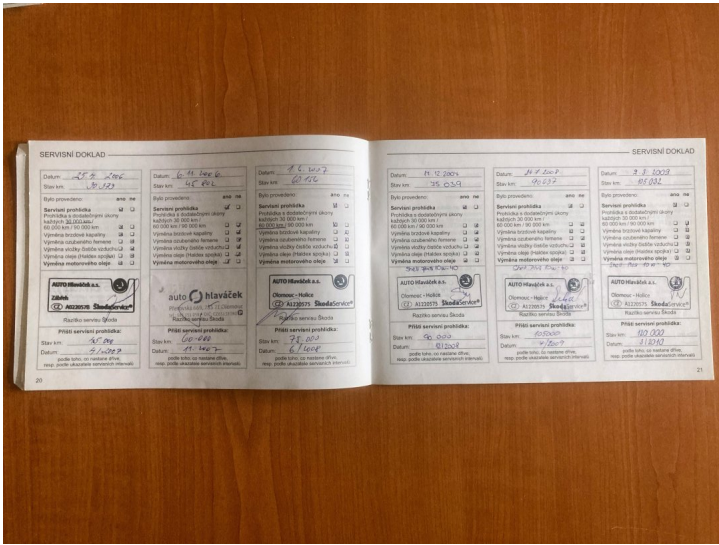 SERVISNÍ DOKLAD
Datum: 25.4.2006
Stav km: 30.173
Bylo provedeno: ano ne
Servisní prohlídka
Prohlídka s dodatečnými úkony
každých 30 000 km /
60 000 km / 90 000 km
Výměna brzdové kapaliny
Výměna ozubeného řemene
Výměna vložky čističe vzduchu
Výměna oleje (Haldex spojka)
Výměna motorového oleje
AUTO Hlaváček a.s.
Zábřeh
A1220575 ŠkodaService®
Razítko servisu Škoda
Příští servisní prohlídka:
Stav km: 45 000
Datum: 4/2007
podle toho, co nastane dříve,
resp. podle ukazatele servisních intervalů
20
Datum: 6.11.2006
Stav km: 45 802
Bylo provedeno: ano ne
Servisní prohlídka
Prohlídka s dodatečnými úkony
každých 30 000 km /
60 000 km / 90 000 km
Výměna brzdové kapaliny
Výměna ozubeného řemene
Výměna vložky čističe vzduchu
Výměna oleje (Haldex spojka)
Výměna motorového oleje
auto hlaváček
Razítko servisu Škoda
Příští servisní prohlídka:
Stav km: 60.000
Datum: 11.2007
podle toho, co nastane dříve,
resp. podle ukazatele servisních intervalů
Datum: 1.6.2007
Stav km: 60 156
Bylo provedeno: ano ne
Servisní prohlídka
Prohlídka s dodatečnými úkony
každých 30 000 km /
60 000 km / 90 000 km
Výměna brzdové kapaliny
Výměna ozubeného řemene
Výměna vložky čističe vzduchu
Výměna oleje (Haldex spojka)
Výměna motorového oleje
AUTO Hlaváček a.s.
Olomouc - Holice
A1220575 ŠkodaService®
Razítko servisu Škoda
Příští servisní prohlídka:
Stav km: 75.000
Datum: 6/2008
podle toho, co nastane dříve,
resp. podle ukazatele servisních intervalů
SERVISNÍ DOKLAD
Datum:
Stav km: 75 039
Bylo provedeno: ano ne
Servisní prohlídka
Prohlídka s dodatečnými úkony
každých 30 000 km /
60 000 km / 90 000 km
Výměna brzdové kapaliny
Výměna ozubeného řemene
Výměna vložky čističe vzduchu
Výměna oleje (Haldex spojka)
Výměna motorového oleje
AUTO Hlaváček a.s.
Olomouc - Holice
A1220575 ŠkodaService®
Razítko servisu Škoda
Příští servisní prohlídka:
Stav km: 90 000
Datum: 12/2008
podle toho, co nastane dříve,
resp. podle ukazatele servisních intervalů
Datum:
Stav km:
Bylo provedeno: ano ne
Servisní prohlídka
Prohlídka s dodatečnými úkony
každých 30 000 km /
60 000 km / 90 000 km
Výměna brzdové kapaliny
Výměna ozubeného řemene
Výměna vložky čističe vzduchu
Výměna oleje (Haldex spojka)
Výměna motorového oleje
AUTO Hlaváček a.s.
Olomouc - Holice
A1220575 ŠkodaService®
Razítko servisu Škoda
Příští servisní prohlídka:
Stav km: 105000
Datum: 7/2009
podle toho, co nastane dříve,
resp. podle ukazatele servisních intervalů
Datum: 7.8.2009
Stav km: 105 032
Bylo provedeno: ano ne
Servisní prohlídka
Prohlídka s dodatečnými úkony
každých 30 000 km /
60 000 km / 90 000 km
Výměna brzdové kapaliny
Výměna ozubeného řemene
Výměna vložky čističe vzduchu
Výměna oleje (Haldex spojka)
Výměna motorového oleje
AUTO Hlaváček a.s.
Olomouc - Holice
A1220575 ŠkodaService®
Razítko servisu Škoda
Příští servisní prohlídka:
Stav km: 120 000
Datum:
podle toho, co nastane dříve,
resp. podle ukazatele servisních intervalů
21